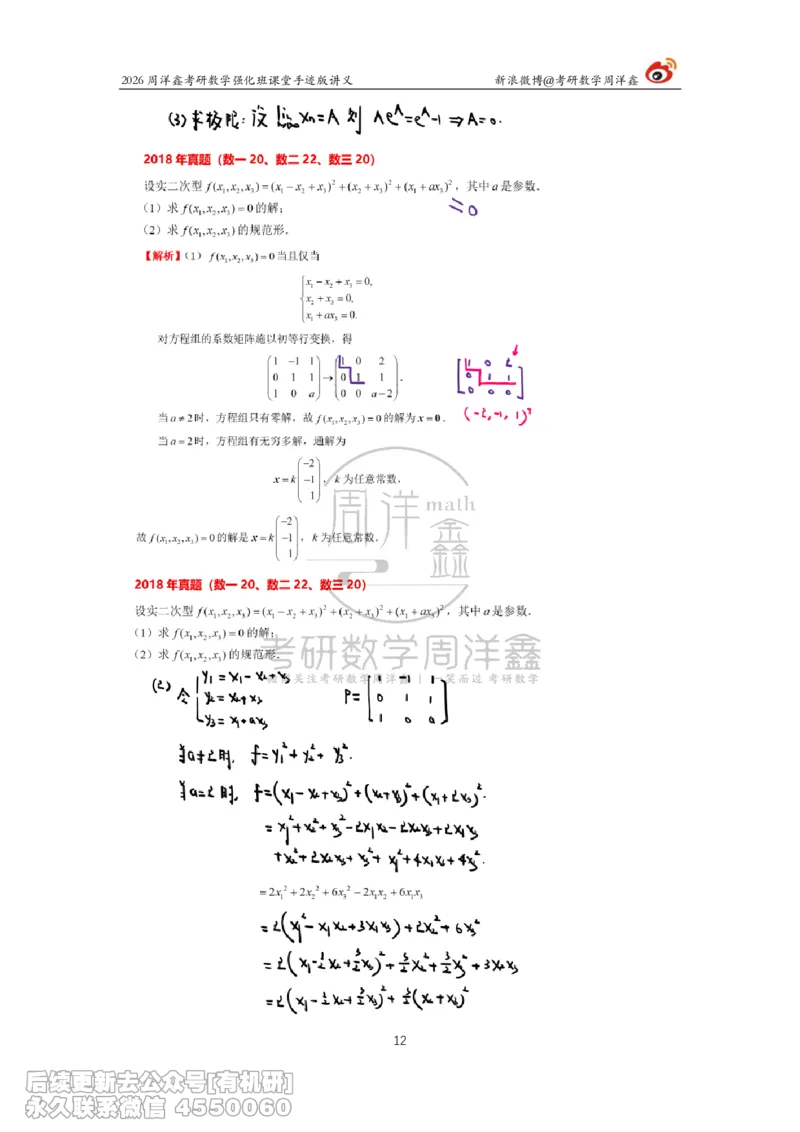 2026 周洋鑫考研数学强化班课堂手迹版讲义 新浪微博@考研数学周洋鑫
(3) 求极限: 设 lim xn = A 则 Ae^A = e^A - 1 ⇒ A = 0.
2018 年真题（数一 20、数二 22、数三 20）
设实二次型 f(x₁,x₂,x₃) = (x₁ − x₂ + x₃)² + (x₂ + x₃)² + (x₁ + ax₃)²，其中 a 是参数．
= 0
（1）求 f(x₁,x₂,x₃) = 0 的解；
（2）求 f(x₁,x₂,x₃) 的规范形．
【解析】（1） f(x₁,x₂,x₃) = 0 当且仅当
x₁ − x₂ + x₃ = 0,
x₂ + x₃ = 0,
x₁ + ax₃ = 0.
对方程组的系数矩阵施以初等行变换，得
1 −1 1 1 0 2 1 0 2
0 1 1 → 0 1 1 . 0 1 1
1 0 a 0 0 a−2 0 0 0
当 a ≠ 2 时，方程组只有零解，故 f(x₁,x₂,x₃) = 0 的解为 x = 0．
(-2, -1, 1)ᵀ
当 a = 2 时，方程组有无穷多解，通解为
−2
x = k −1 ，k 为任意常数，
1
周洋鑫 math
−2
故 f(x₁,x₂,x₃) = 0 的解是 x = k −1 ，k 为任意常数．
1
2018 年真题（数一 20、数二 22、数三 20）
设实二次型 f(x₁,x₂,x₃) = (x₁ − x₂ + x₃)² + (x₂ + x₃)² + (x₁ + ax₃)²，其中 a 是参数．
（1）求 f(x₁,x₂,x₃) = 0 的解；
（2）求 f(x₁,x₂,x₃) 的规范形．
考研数学周洋鑫
关注考研数学周洋鑫 | 一笑而过 考研数学
(2) 令 y₁ = x₁ - x₂ + x₃
y₂ = x₂ + x₃
y₃ = x₁ + ax₃
P = 1 -1 1
0 1 1
1 0 a
当 a≠2 时, f = y₁² + y₂² + y₃².
当 a=2 时, f = (x₁ - x₂ + x₃)² + (x₂ + x₃)² + (x₁ + 2x₃)².
= x₁² + x₂² + x₃² - 2x₁x₂ - 2x₂x₃ + 2x₁x₃
+ x₂² + 2x₂x₃ + x₃² + x₁² + 4x₁x₃ + 4x₃².
= 2x₁² + 2x₂² + 6x₃² − 2x₁x₂ + 6x₁x₃
= 2(x₁² - x₁x₂ + 3x₁x₃) + 2x₂² + 6x₃²
= 2(x₁ - ½x₂ + 3/2 x₃)² + 3/2 x₂² + 3/2 x₃² + 3x₂x₃
= 2(x₁ - ½x₂ + 3/2 x₃)² + 3/2 (x₂ + x₃)²
12
后续更新去公众号[有机研]
永久联系微信 4550060